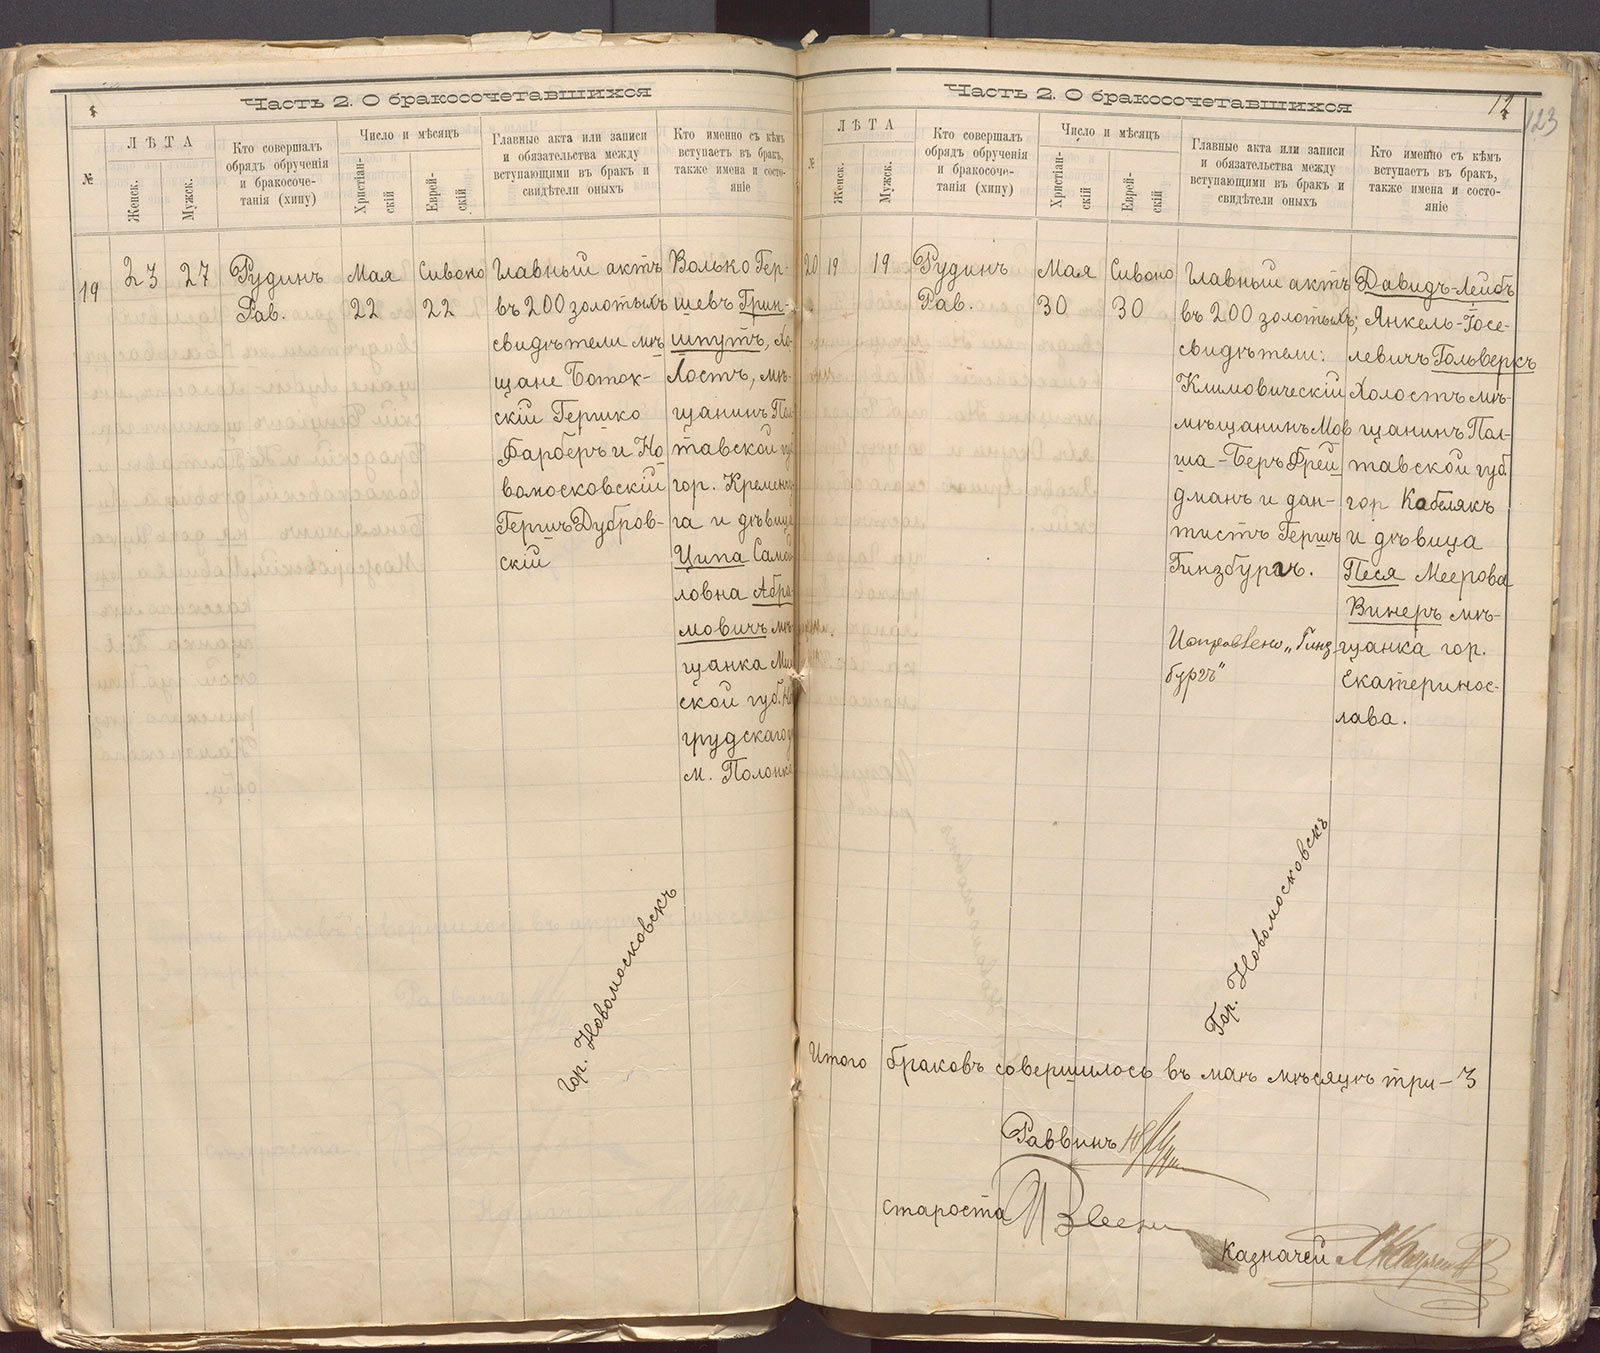 Часть 2. О бракосочетавшихся
№
ЛѢТА
Женск.
Мужск.
Кто совершалъ
обрядъ обрученія
и бракосоче-
танія (хипу)
Число и мѣсяцъ
Христіан-
скій
Еврей-
скій
Главные акта или записи
и обязательства между
вступающими въ бракъ и
свидѣтели оныхъ
Кто именно съ кѣмъ
вступаетъ въ бракъ,
также имена и состо-
яніе
19
23
27
Рудинъ
Рав.
Мая
22
Сивоно
22
Главный актъ
въ 200 золотыхъ
свидѣтели мѣ
щане Боток-
скій Гершко
Фарберъ и Но
вомосковскій
Гершъ Дубров-
скій
Волько Гер-
шевъ Грин-
шпутъ, Хо
лостъ, мѣ-
щанинъ Пол
тавской гу
гор. Кременчу
га и дѣвица
Ципа Самой
ловна Абра
мовичъ мѣ
щанка Мин
ской губ. Но
грудскаго у
м. Полонка
гор. Новомосковскъ
Часть 2. О бракосочетавшихся
12
123
№
ЛѢТА
Женск.
Мужск.
Кто совершалъ
обрядъ обрученія
и бракосоче-
танія (хипу)
Число и мѣсяцъ
Христіан-
скій
Еврей-
скій
Главные акта или записи
и обязательства между
вступающими въ бракъ и
свидѣтели оныхъ
Кто именно съ кѣмъ
вступаетъ въ бракъ,
также имена и состо-
яніе
20
19
19
Рудинъ
Рав.
Мая
30
Сивоно
30
Главный актъ
въ 200 золотыхъ;
свидѣтели:
Климовическій
мѣщанинъ Мов
ша-Беръ Фрей
дманъ и дан-
тистъ Гершъ
Гинзбургъ.
Исправлено „Гинз
бургъ“
Давидъ-Лейбъ
Янкель-Іосе-
левичъ Гольверкъ
Холостъ мѣ-
щанинъ Пол-
тавской губ
гор Кобелякъ
и дѣвица
Песя Меерова
Винеръ мѣ-
щанка гор.
Екатеринос-
лава.
Гор. Новомосковскъ
Итого браковъ совершилось въ маѣ мѣсяцѣ три-3
Раввинъ
староста
казначей